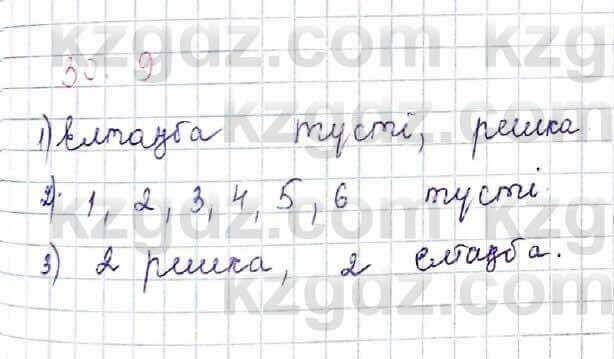 kzgdz.com kzgdz.com
30.9
1) Елтаңба түсті, решка
kzgdz.com kzgdz.com
2) 1, 2, 3, 4, 5, 6 түсті.
3) 2 решка, 2 елтаңба.
kzgdz.com kzgdz.com